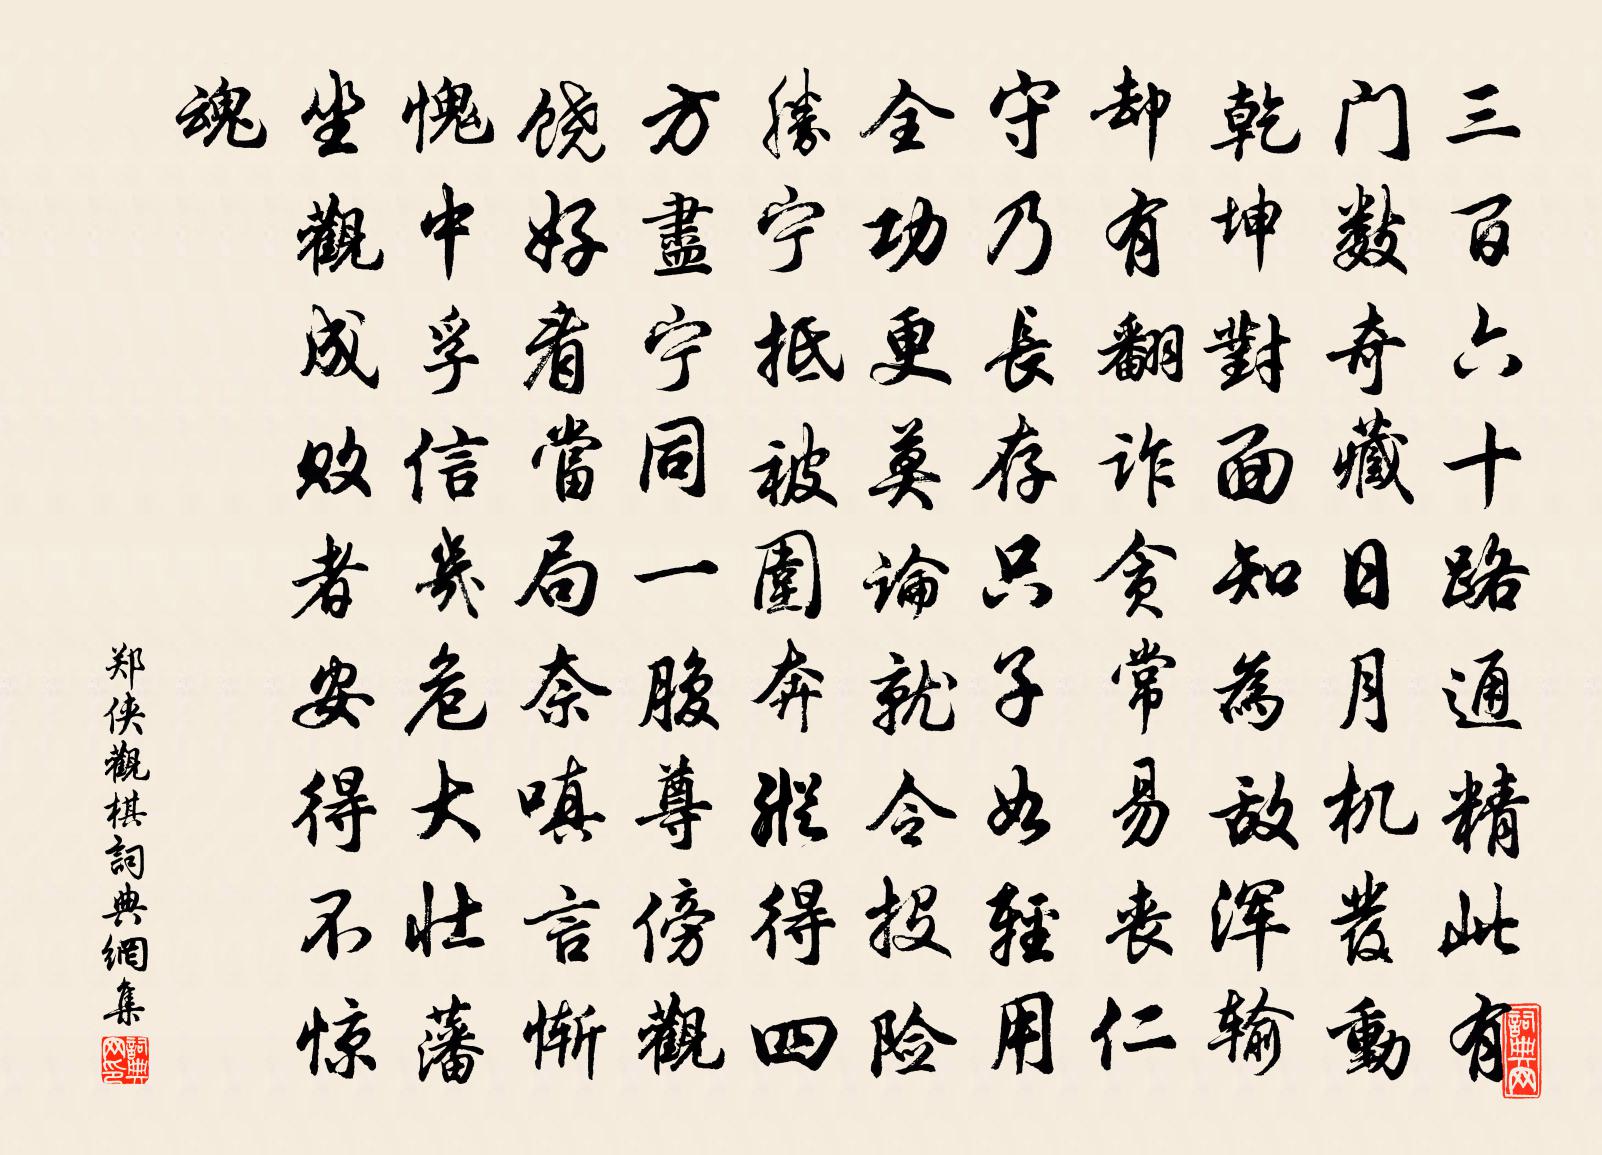 三百六十路通精此有
门数奇藏日月机發動
乾坤對面知為敌浑输
却有翻诈贪常易丧仁
守乃長存只子如輕用
全功更莫論就令投险
勝宁抵被圍奔縱得四
方盡宁同一腹尊傍觀
饶好看當局奈嗔言惭
愧中孚信幾危大壮藩
坐觀成败者安得不惊
魂
郑侠觀棋詞典網集
詞典网
詞典网